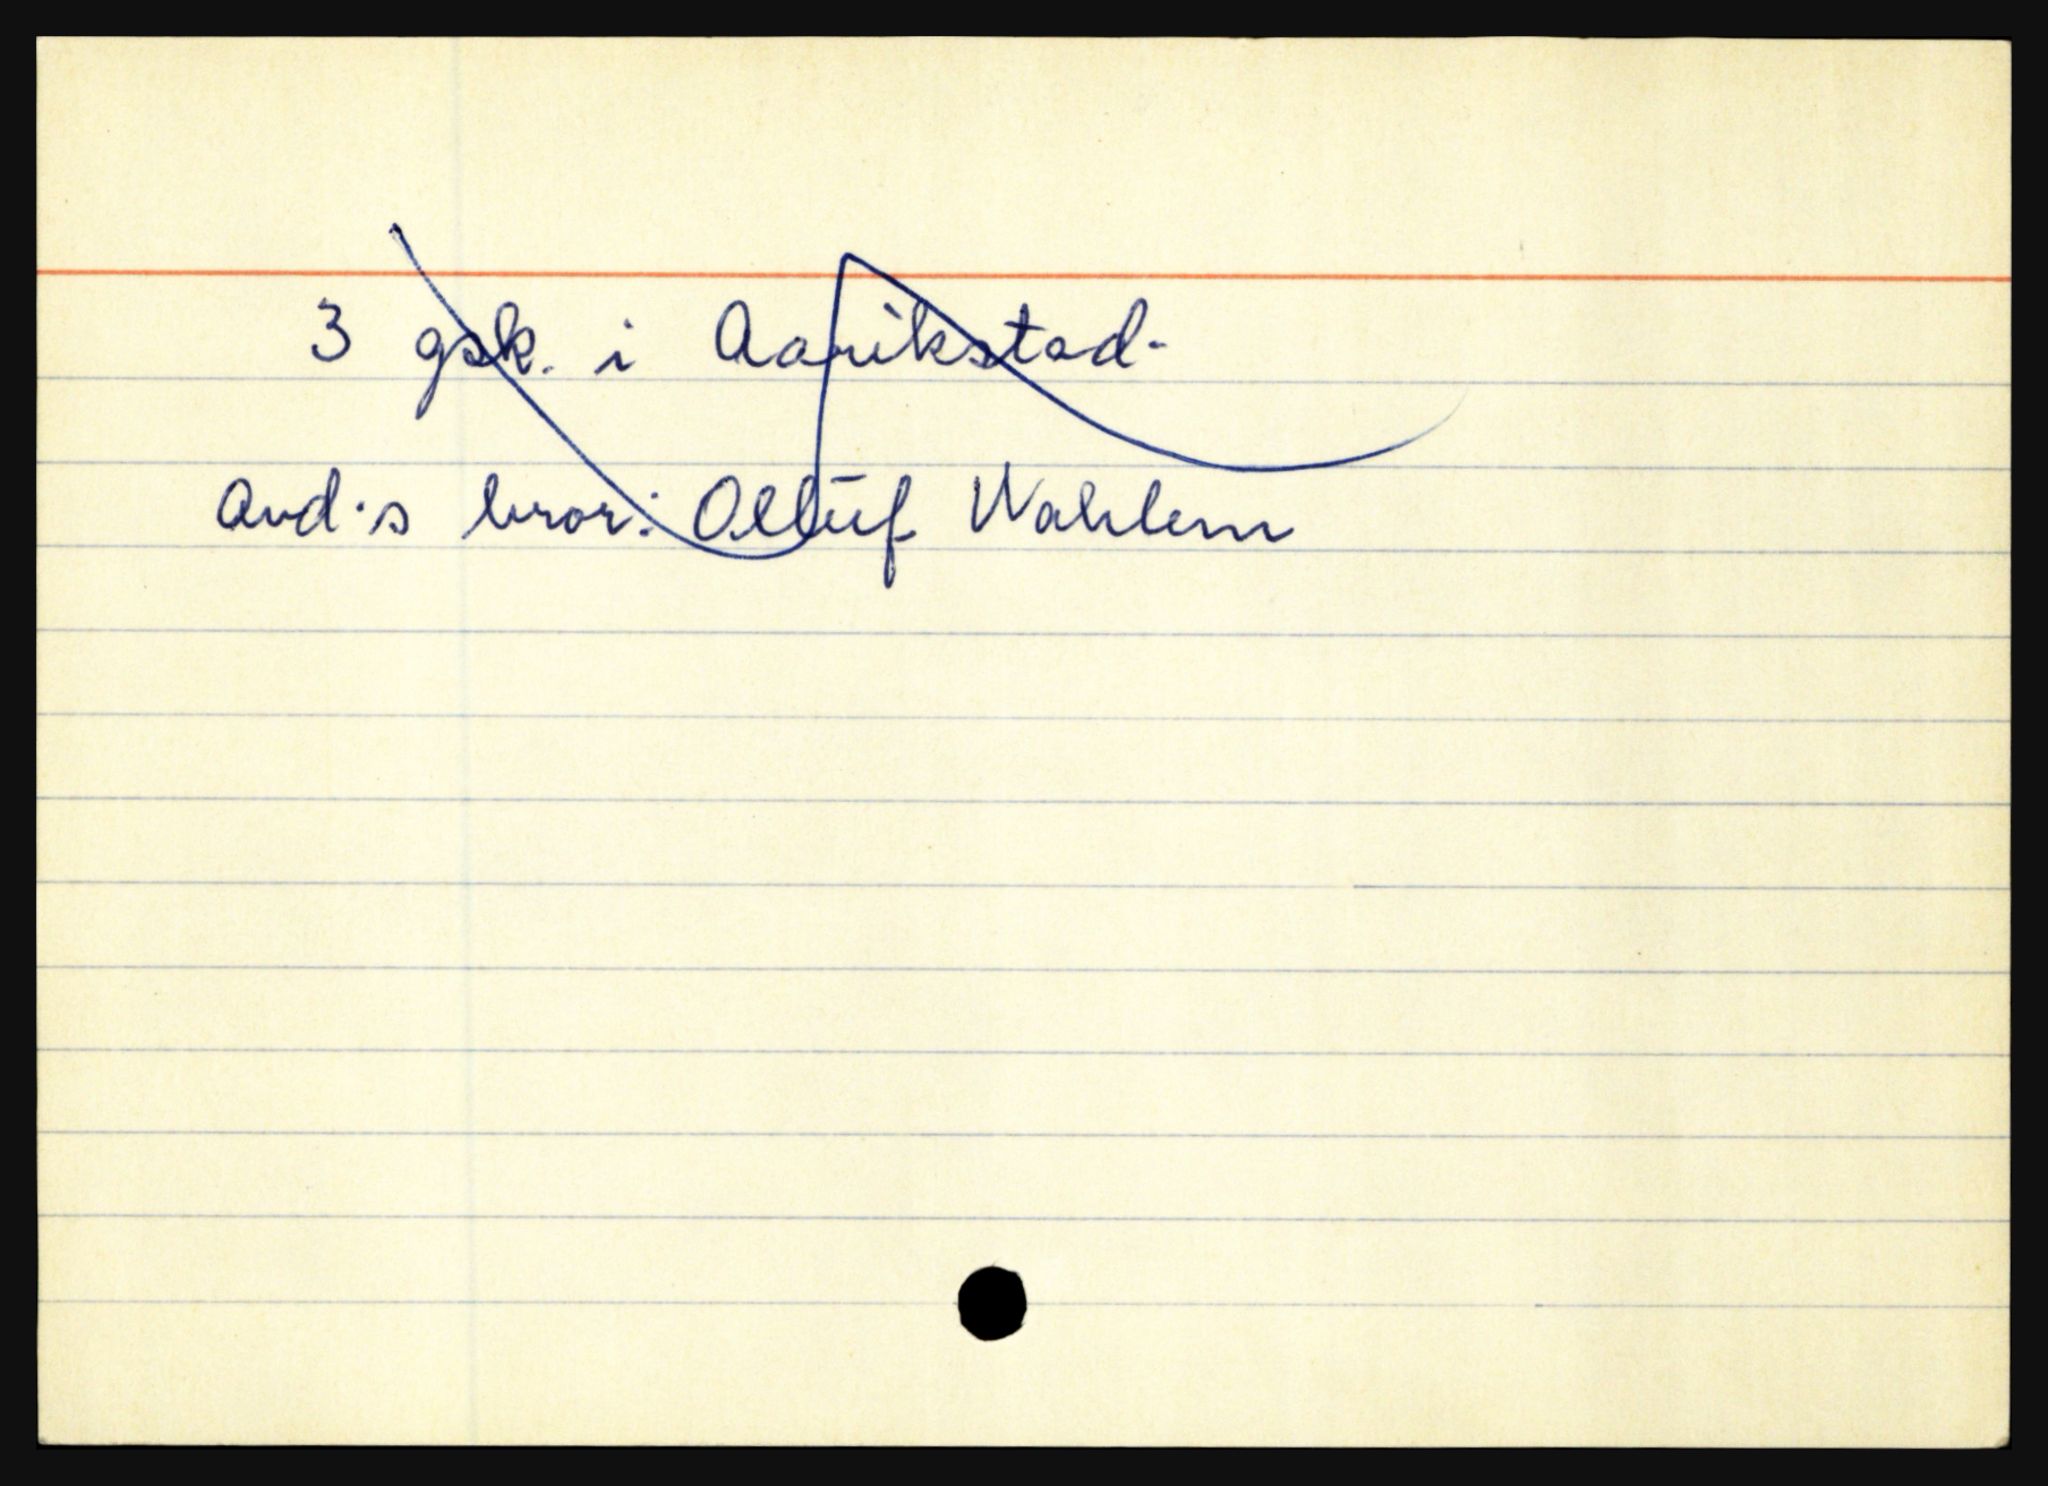 3 gsk. i Aarikstad.
Avd.s bror: Olluf Wahlem